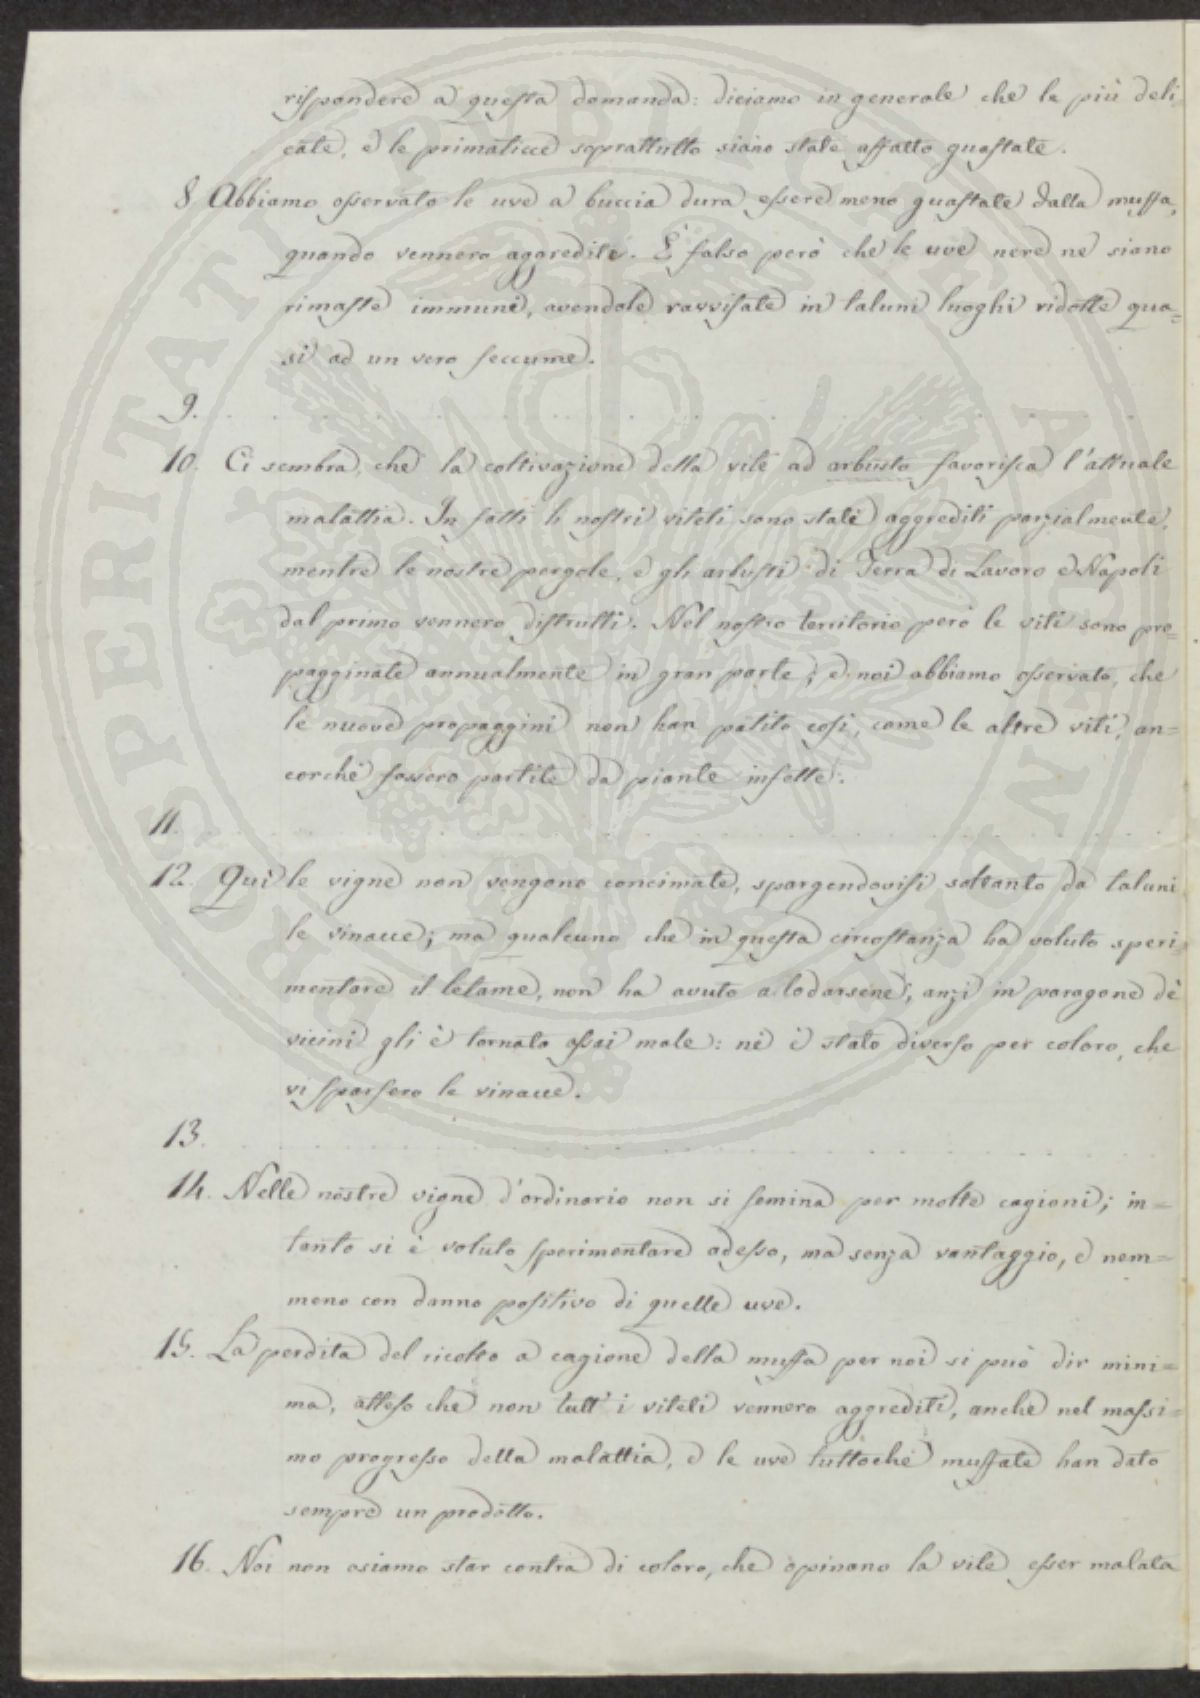 rispondere a questa domanda: diciamo in generale che le più deli
cate, e le primaticce soprattutto siano state affatto guastate.
8 Abbiamo osservato le uve a buccia dura essere meno guastate dalla muffa,
quando vennero aggredite. È falso però che le uve nere ne siano
rimaste immuni, avendole ravvisate in taluni luoghi ridotte qua=
si ad un vero seccume.
9. . . . . . . . . . . . . . . . . . . . . . .
10. Ci sembra, che la coltivazione della vite ad arbusto favorisca l'attuale
malattia. In fatti li nostri viteti sono stati aggrediti parzialmente,
mentre le nostre pergole, e gli arbusti di Terra di Lavoro e Napoli
dal primo vennero distrutti. Nel nostro territorio però le viti sono pro=
pagginate annualmente in gran parte; e noi abbiamo osservato, che
le nuove propaggini non han patito così, come le altre viti, an=
corchè fossero partite da piante infette.
11. . . . . . . . . . . . . . . . . . . . . . .
12. Qui le vigne non vengono concimate, spargendovisi soltanto da taluni
le vinacce; ma qualcuno che in questa circostanza ha voluto speri=
mentare il letame, non ha avuto a lodarsene, anzi in paragone de'
vicini gli è tornato assai male: nè è stato diverso per coloro, che
vi sparsero le vinacce.
13. . . . . . . . . . . . . . . . . . . . . . .
14. Nelle nostre vigne d'ordinario non si semina per molte cagioni; in=
tanto si è voluto sperimentare adesso, ma senza vantaggio, e nem=
meno con danno positivo di quelle uve.
15. La perdita del ricolto a cagione della muffa per noi si può dir mini=
ma, atteso che non tutt'i viteti vennero aggrediti, anche nel massi=
mo progresso della malattia, e le uve tuttochè muffate han dato
sempre un prodotto.
16. Noi non osiamo star contra di coloro, che opinano la vite esser malata
PROSPERITATI PUBLICAE AUGENDAE